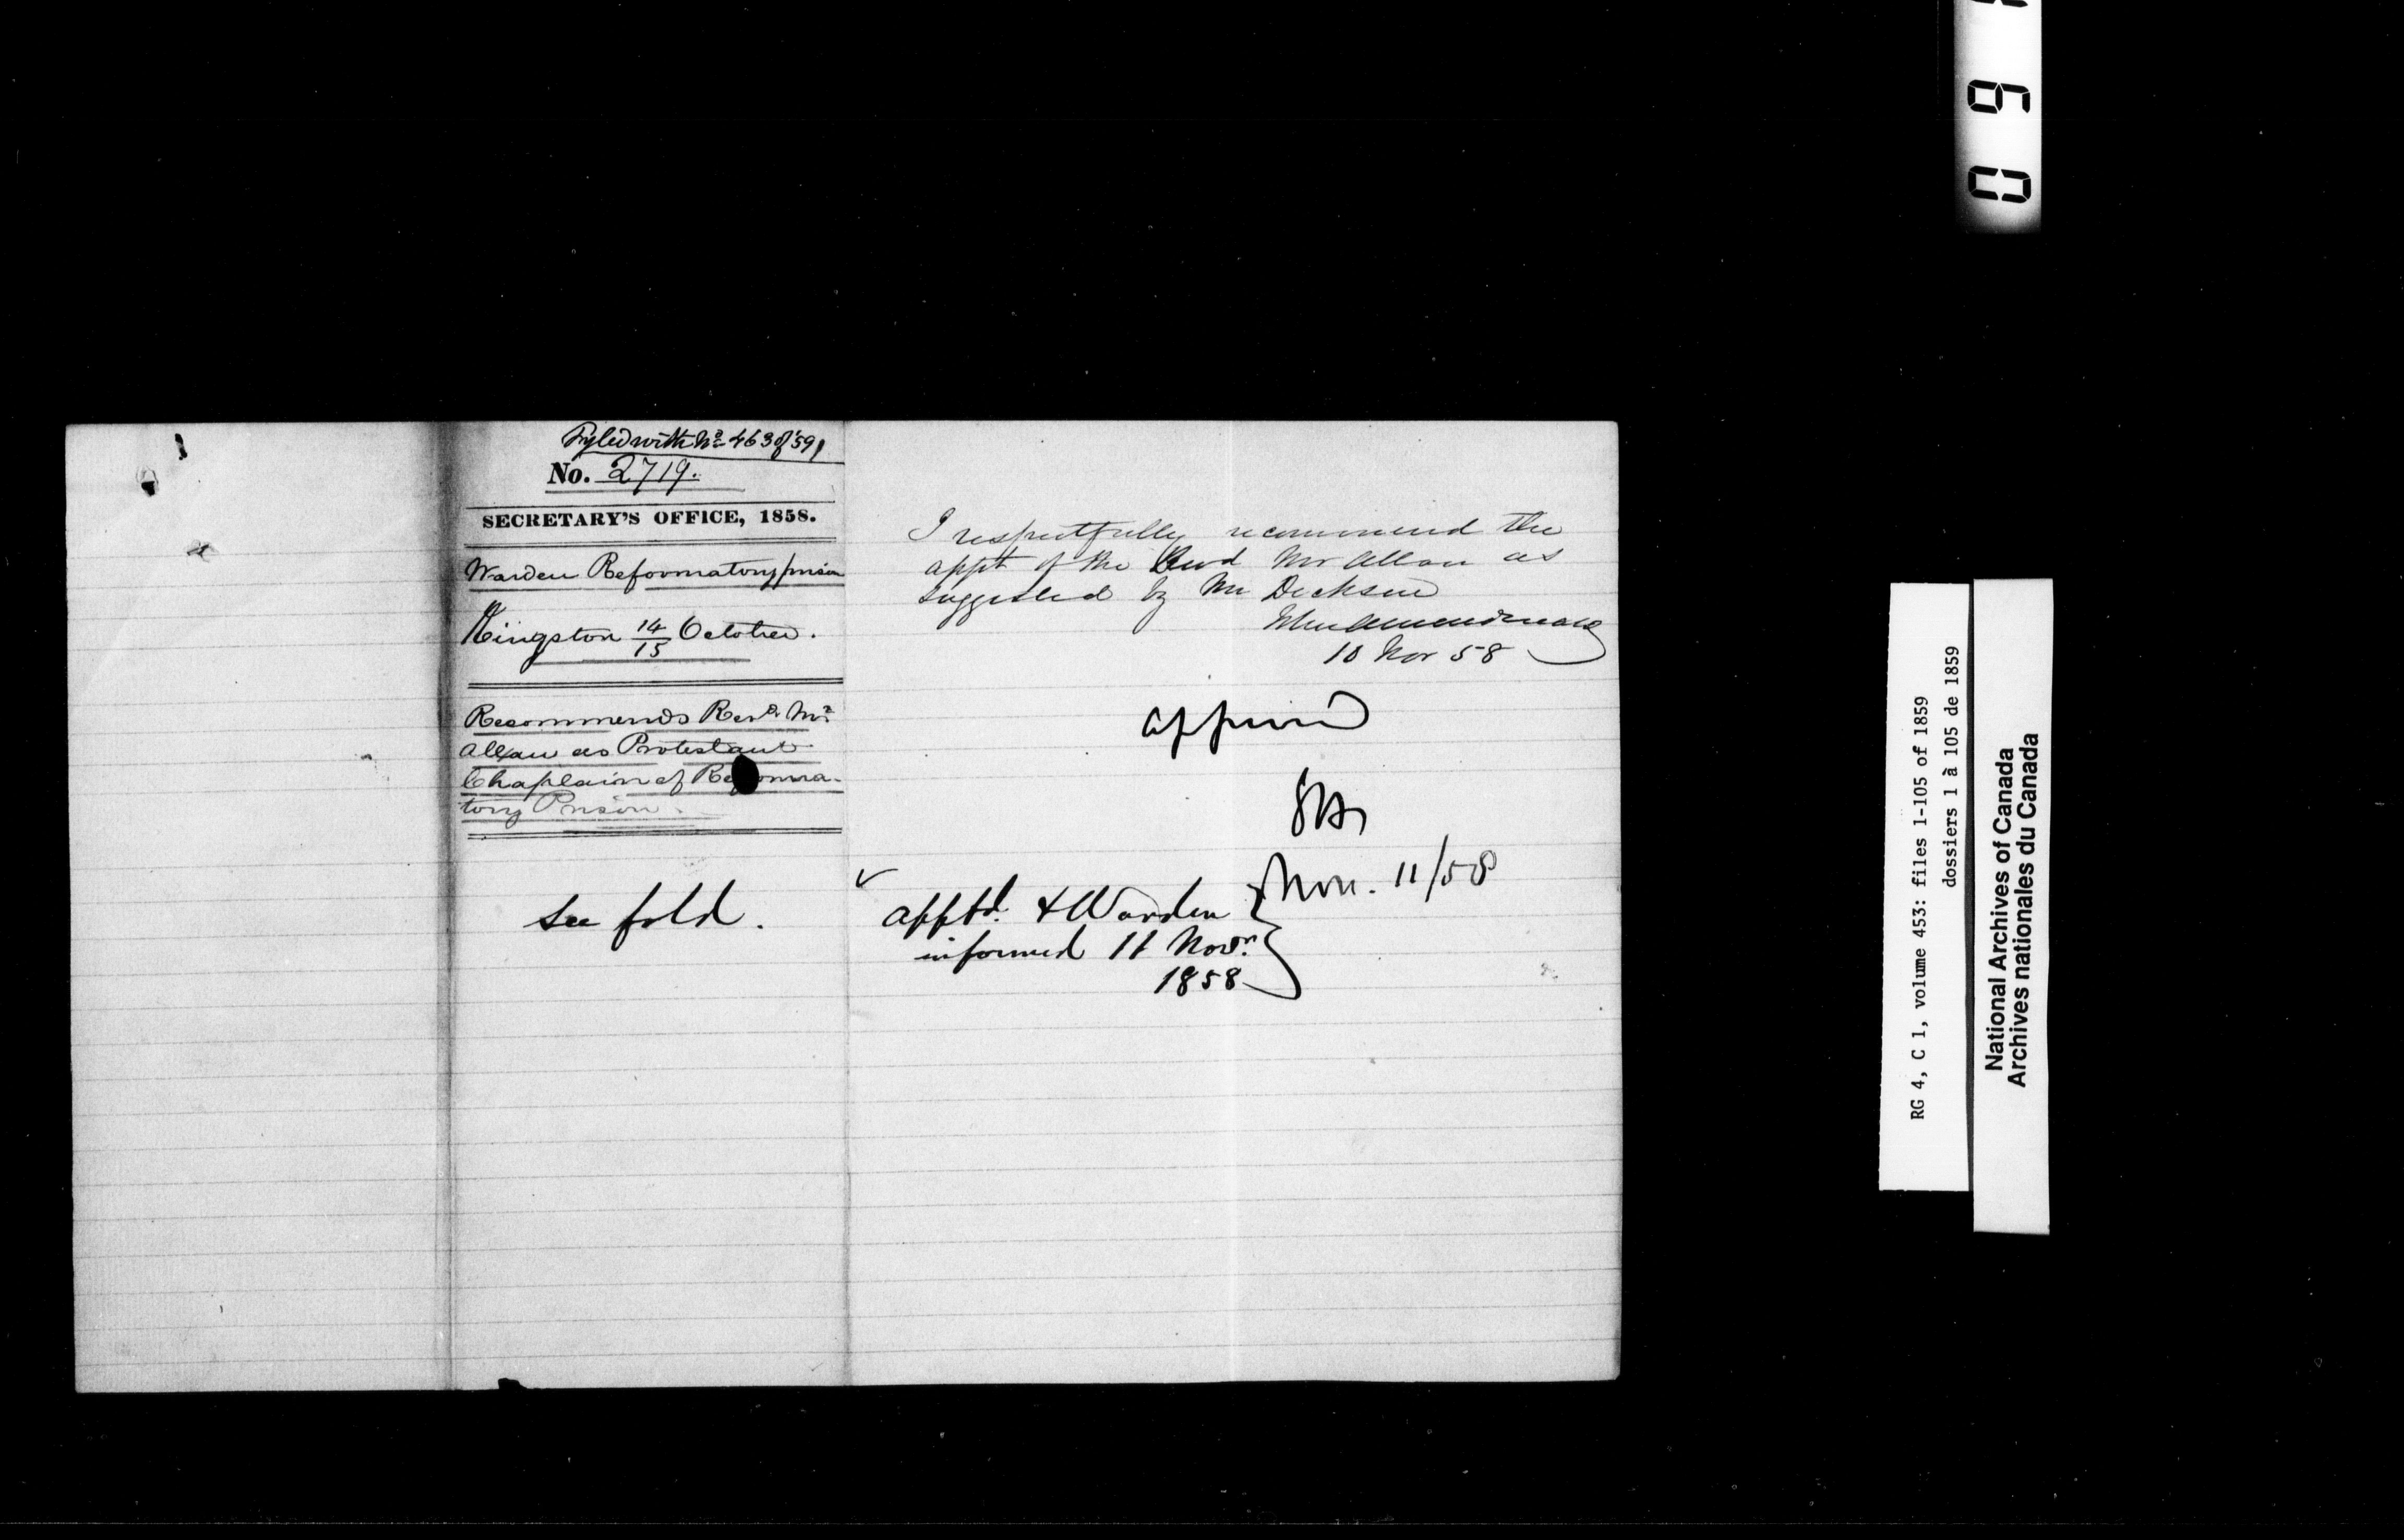 Fyled with No 463 of '59
No. 2719.
SECRETARY'S OFFICE, 1858.
Warden Reformatory prison
Kingston 14/15 October.
Recommends Revd. Mr.
Allan as Protestant
Chaplain of Reforma-
tory Prison.
see fold.
I respectfully recommend the
appt of the Revd Mr Allan as
suggested by Mr Dickson
10 Nov 58
approved
Nov. 11/58
apptd. & Warden
informed 11 Novr.
1858
0 9
RG 4, C 1, volume 453: files 1-105 of 1859
dossiers 1 à 105 de 1859
National Archives of Canada
Archives nationales du Canada